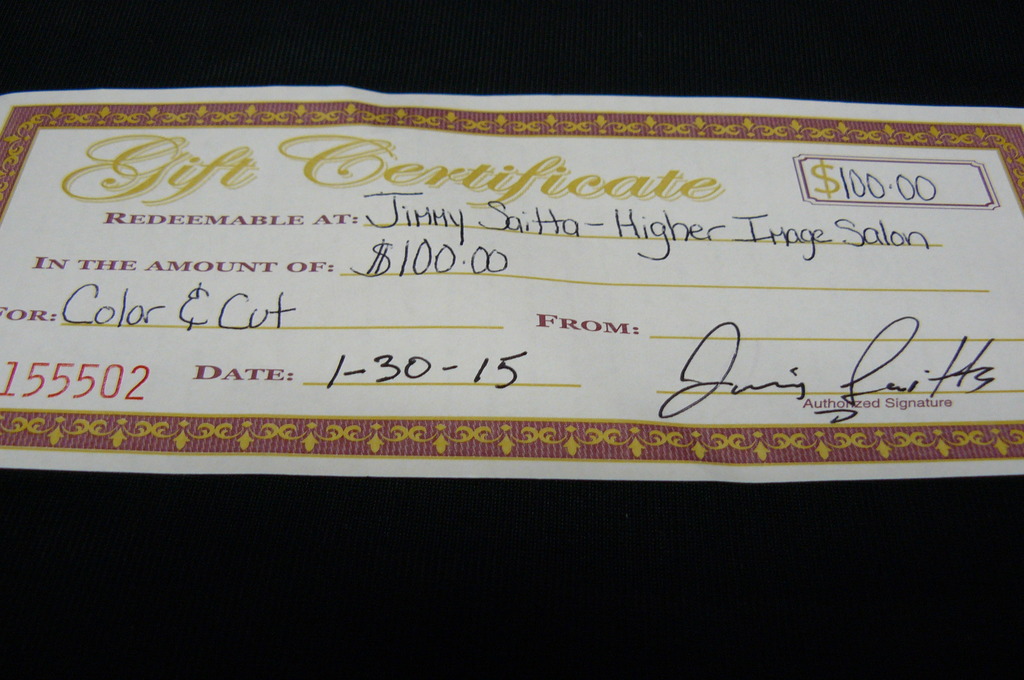 Gift Certificate $100.00
REDEEMABLE AT: Jimmy Saitta - Higher Image Salon
IN THE AMOUNT OF: $100.00
FOR: Color & Cut FROM:
155502 DATE: 1-30-15
Authorized Signature